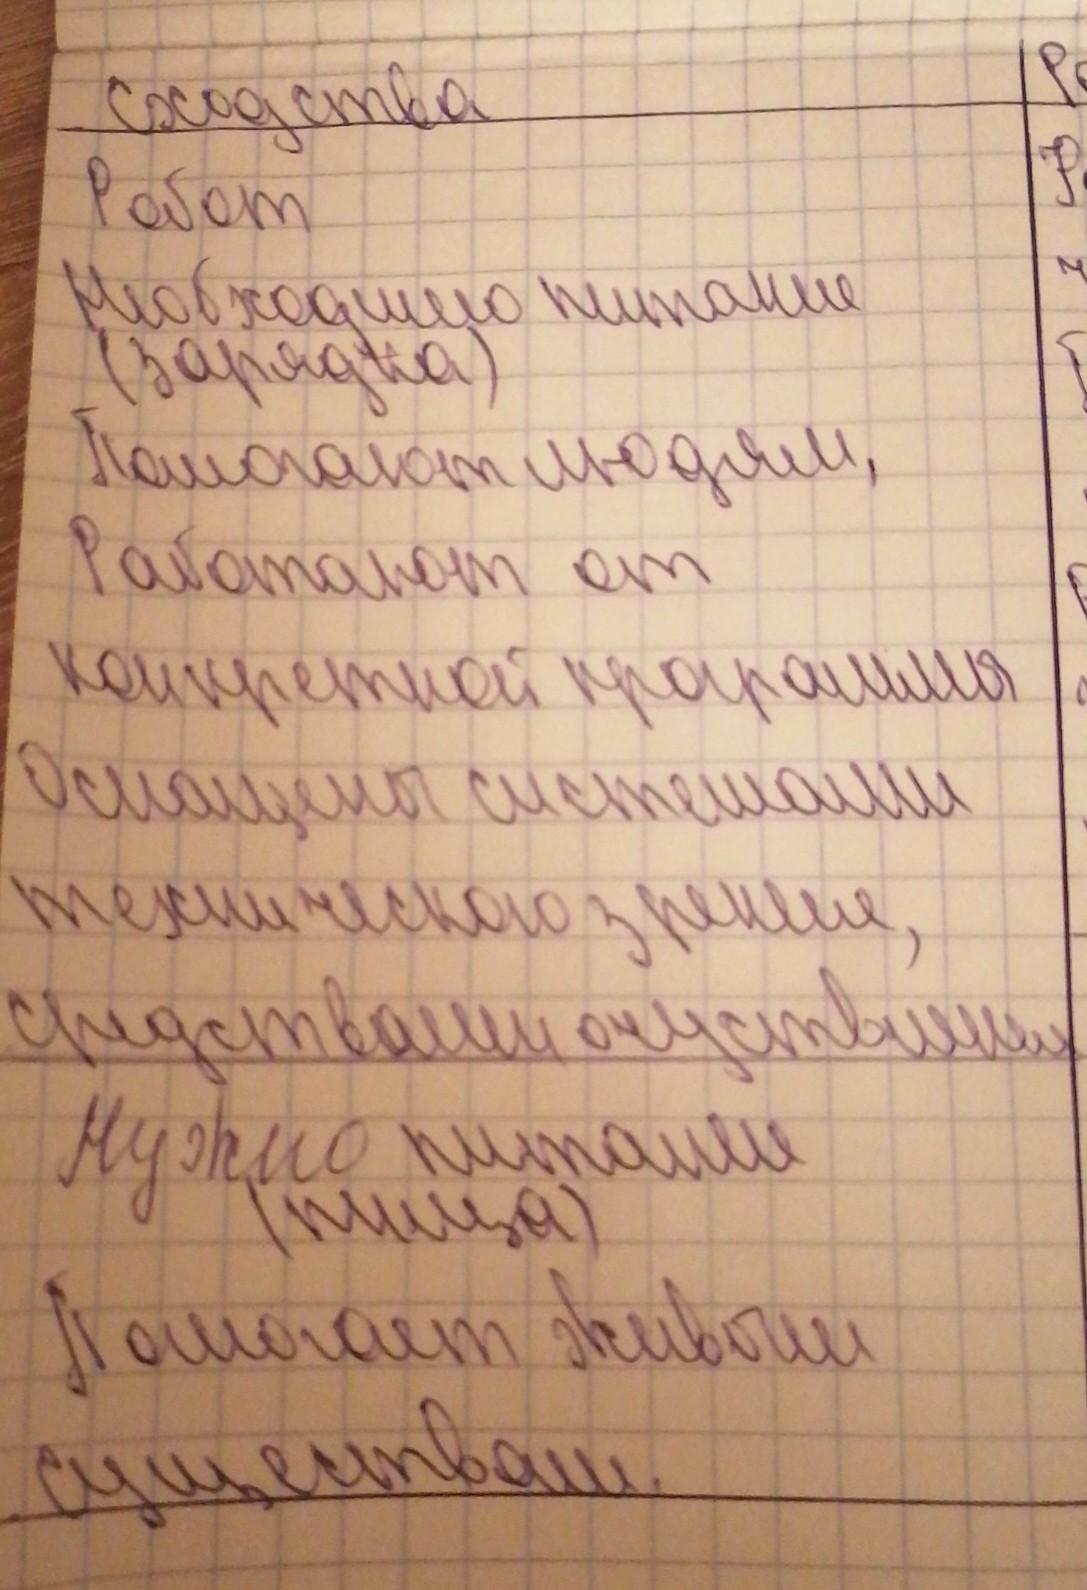 Сходства
Робот
Необходимо питание
(зарядка)
Помогают людям,
Работают от
конкретной программы
Оснащены системами
технического зрение,
средствами очуствления
Нужно питание
(пища)
Помогает живым
существам.